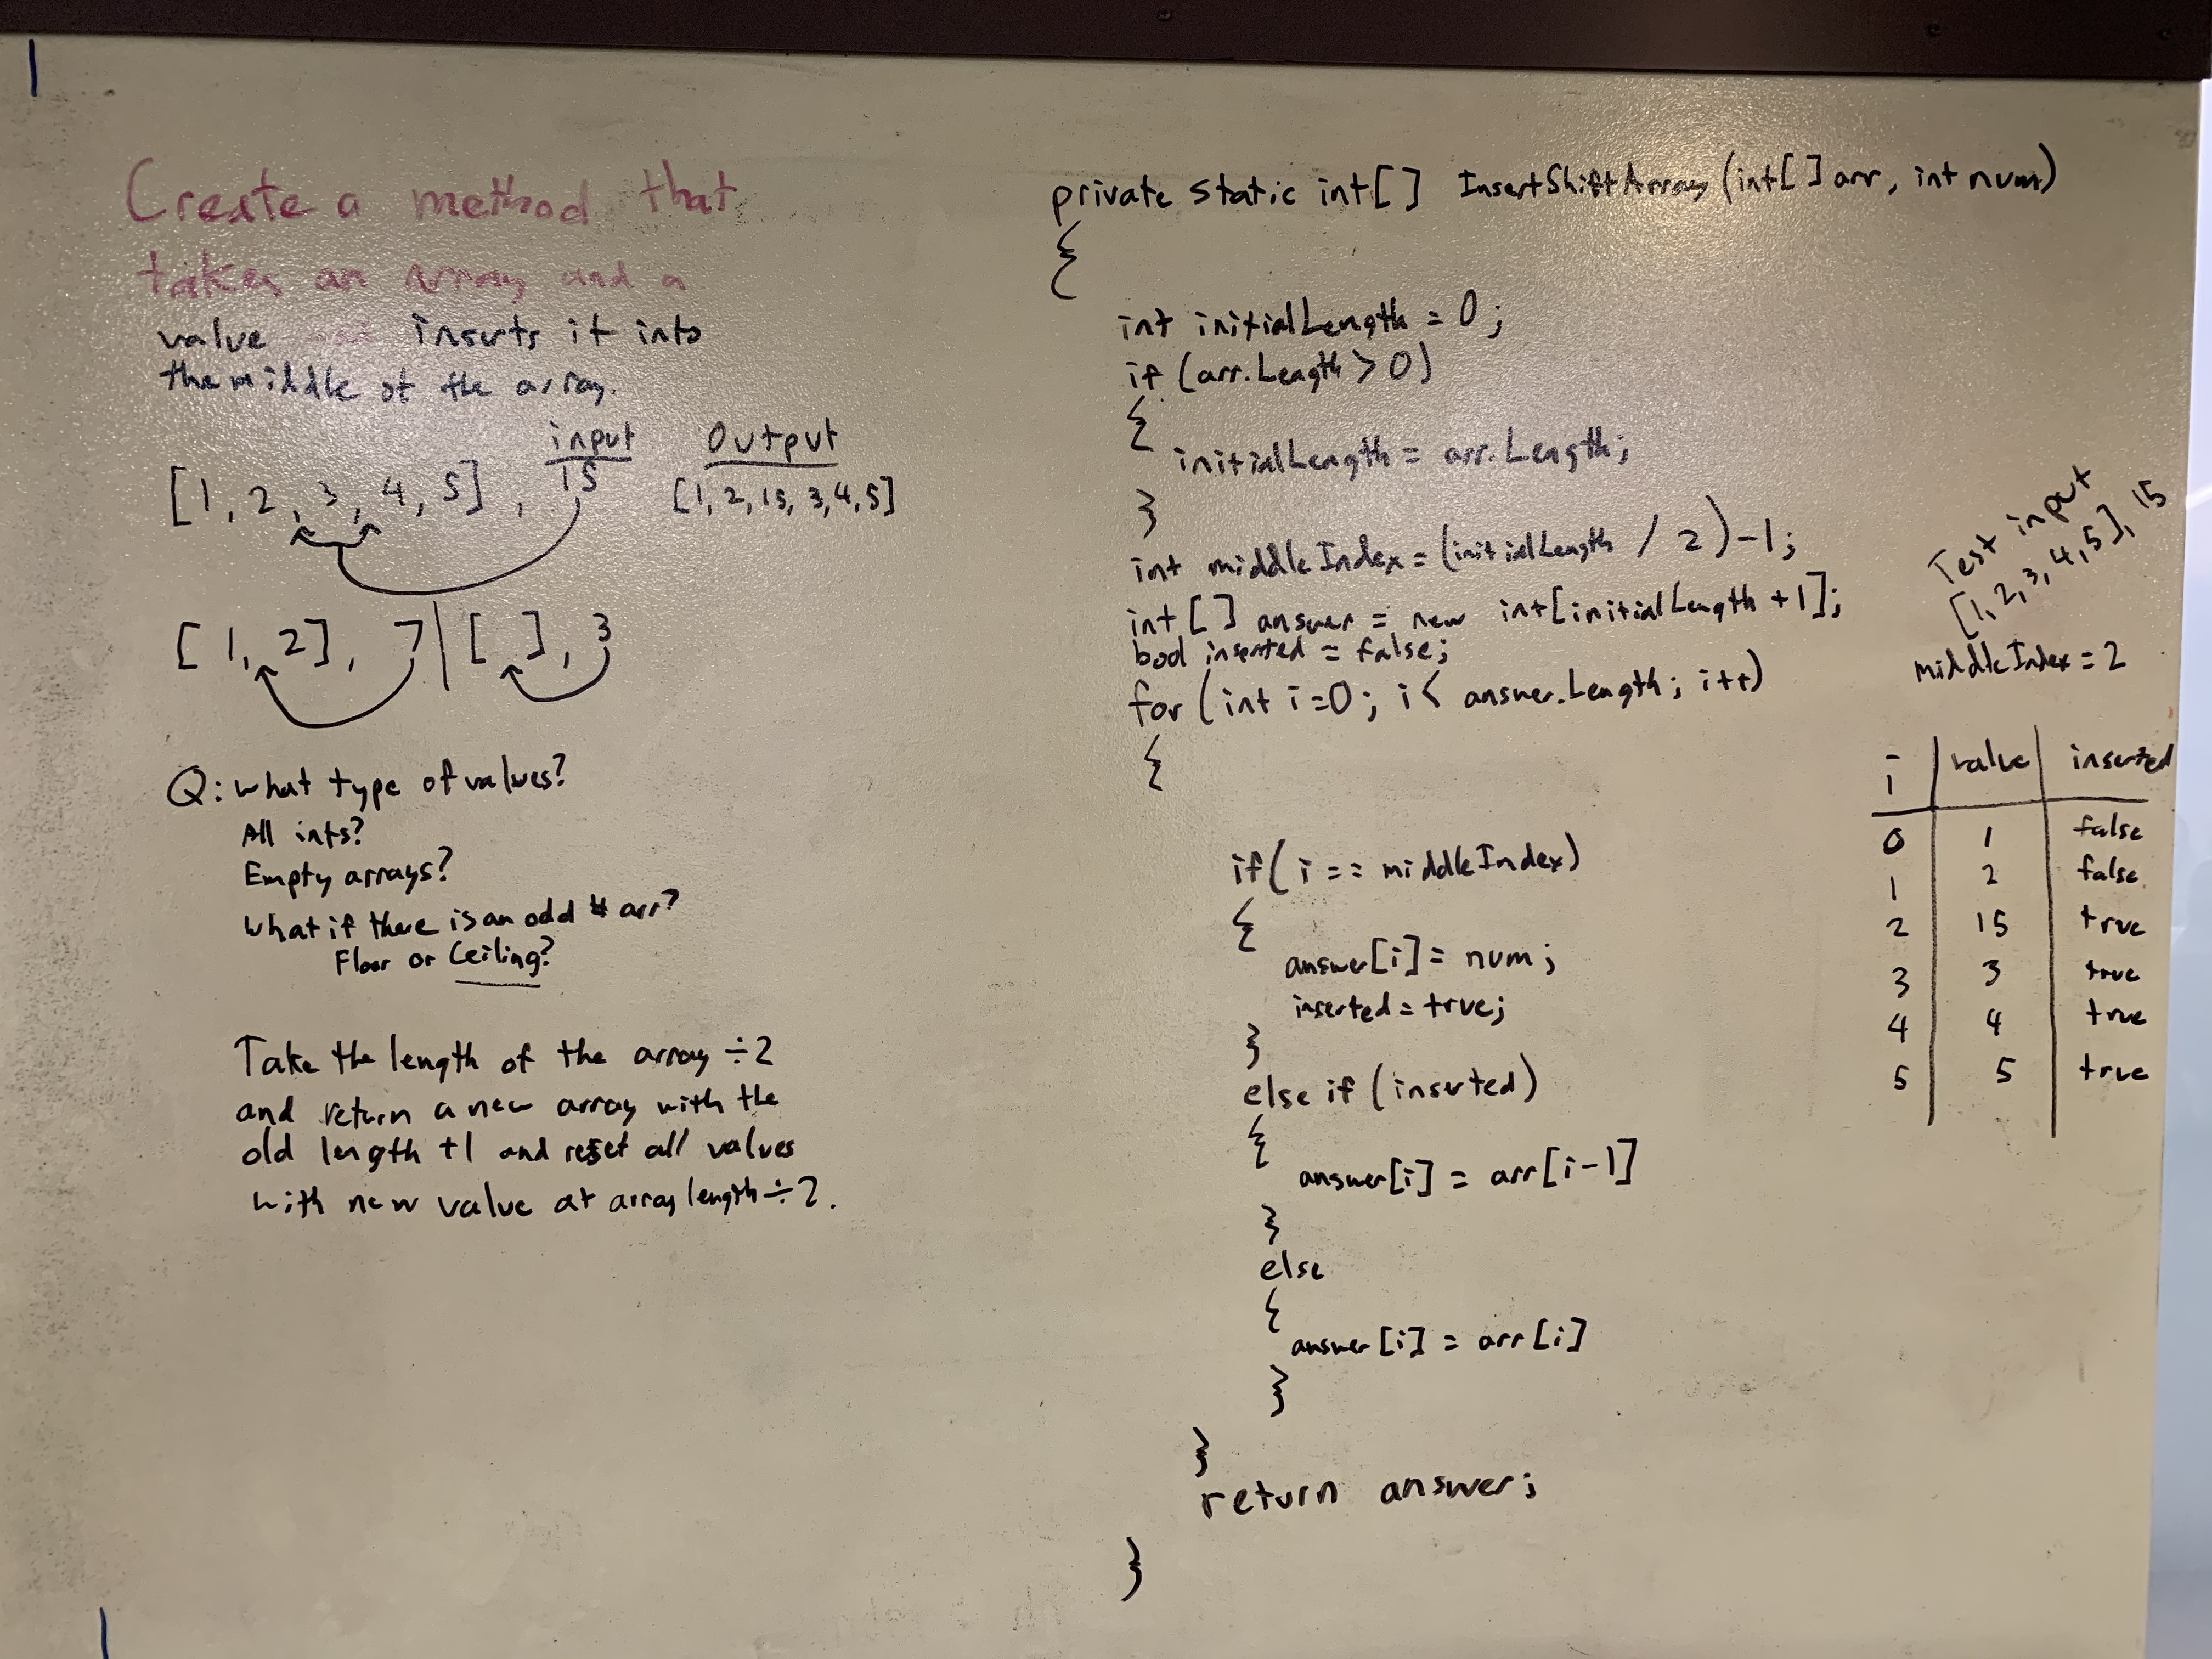 Create a method that
takes an array and a
value inserts it into
the middle of the array.
input Output
[1, 2, 3, 4, 5] , 15 [1, 2, 15, 3, 4, 5]
[1, 2], 7 | [ ], 3
Q: What type of values?
All ints?
Empty arrays?
What if there is an odd # arr?
Floor or Ceiling?
Take the length of the array ÷2
and return a new array with the
old length +1 and reset all values
with new value at array length ÷2.
private static int[] InsertShiftArray (int[] arr, int num)
{
int initialLength = 0;
if (arr.Length > 0)
{
initialLength = arr.Length;
}
int middleIndex = (initialLength / 2) -1;
int[] answer = new int[initialLength +1];
bool inserted = false;
for (int i=0; i < answer.Length; i++)
{
if( i == middleIndex)
{
answer[i] = num;
inserted = true;
}
else if (inserted)
{
answer[i] = arr[i-1]
}
else
{
answer[i] = arr[i]
}
}
return answer;
}
Test input
[1, 2, 3, 4, 5], 15
middleIndex = 2
i value inserted
0 1 false
1 2 false
2 15 true
3 3 true
4 4 true
5 5 true